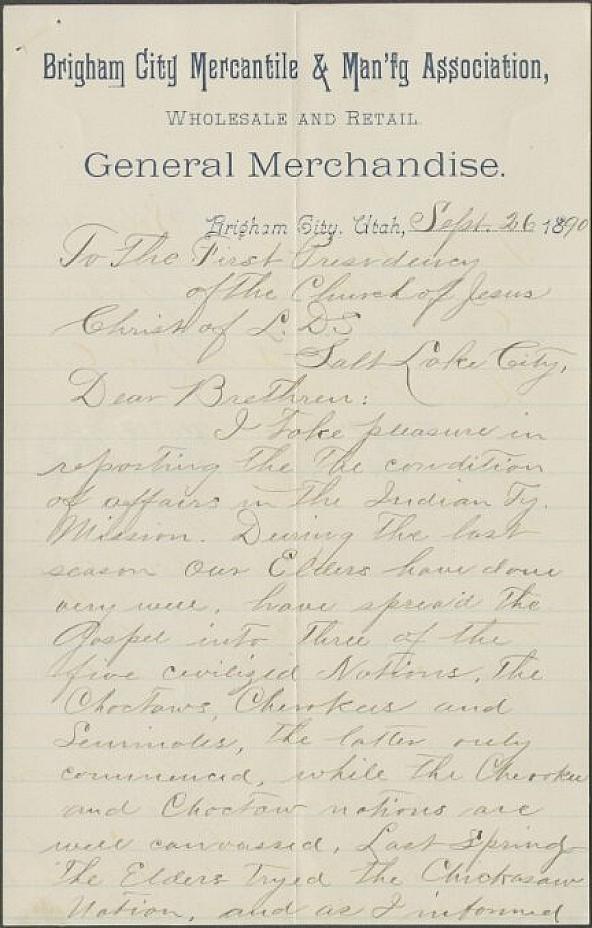 Brigham City Mercantile & Man'fg Association,
WHOLESALE AND RETAIL
General Merchandise.
Brigham City, Utah, Sept. 26 1890
To The First Presidency
of the Church of Jesus
Christ of L. D. S
Salt Lake City,
Dear Brethren:
I take pleasure in
reporting the the condition
of affairs in the Indian Ty.
Mission. During the last
season our Elders have done
very well, have spread the
Gospel into three of the
five civilized Nations, the
Choctaws, Cherokees and
Seminoles, the latter only
commenced, while the Cherokee
and Choctaw nations are
well canvassed, Last Spring
the Elders tryed the Chickasaw
Nation, and as I informed